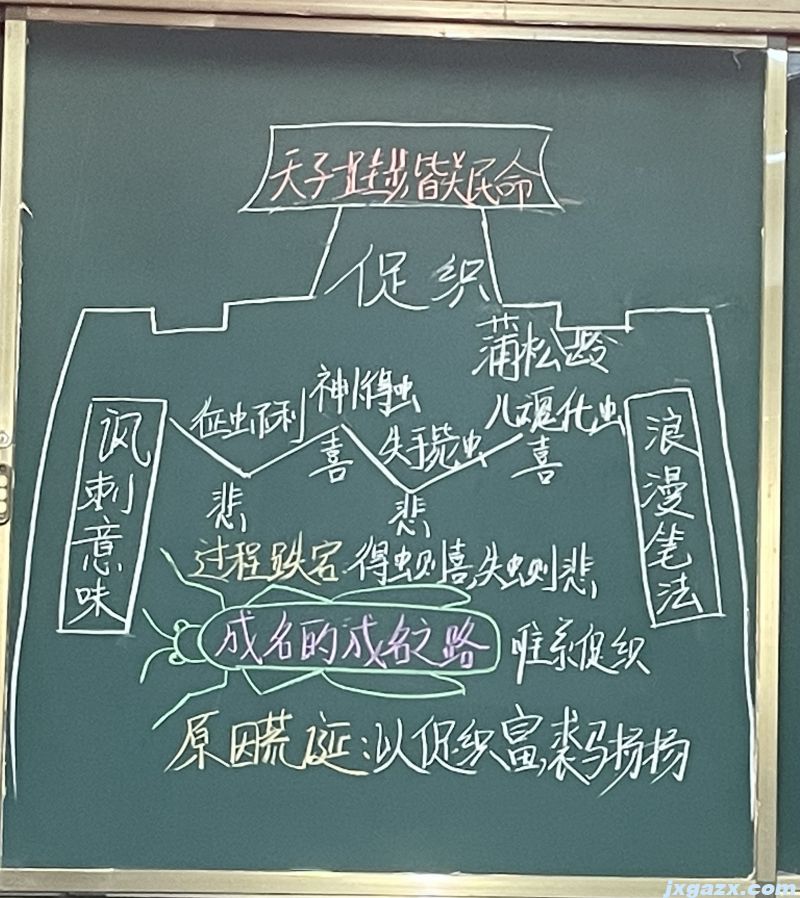 天子跬步皆关民命
促织
蒲松龄
讽刺意味
征虫不利
悲
神卜得虫
喜
失手毙虫
悲
儿魂化虫
喜
浪漫笔法
过程跌宕 得虫则喜,失虫则悲
成名的成名之路
唯系促织
原因荒诞:以促织富,裘马扬扬
jxgazx.com